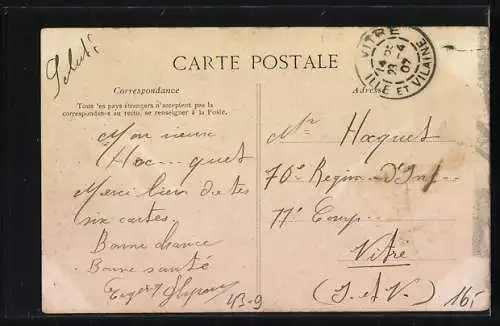 Salut
CARTE POSTALE
Correspondance
Tous les pays étrangers n'acceptent pas la
correspondance au recto, se renseigner à la Poste.
Adresse
VITRÉ
23 -4
07
ILLE ET VILAINE
Mon vieux
Hoc...quet
Merci bien de tes
six cartes.
Bonne chance
Bonne santé
Mr Hocquet
70e Regim. d'Inf
11e Comp
Vitré
(I. et V.)
43-9
16,-